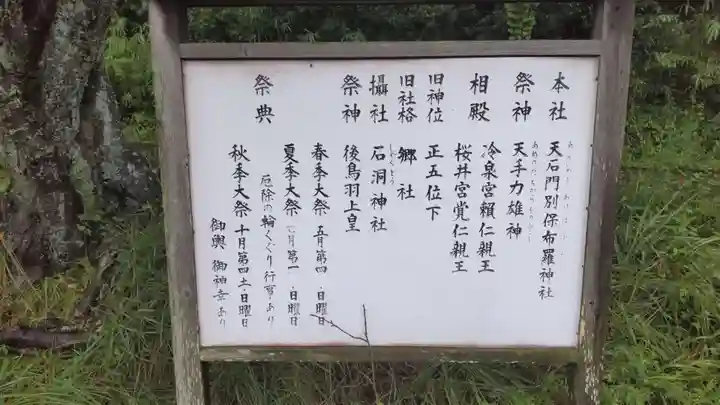 本社 天石門別保布羅神社
祭神 天手力雄神
相殿 冷泉宮頼仁親王
桜井宮覚仁親王
旧神位 正五位下
旧社格 郷社
攝社 石洞神社
祭神 後鳥羽上皇
祭典 春季大祭 五月第四・日曜日
夏季大祭 七月第一・日曜日
厄除の輪くぐり行事あり
秋季大祭 十月第四土・日曜日
御輿 御神幸あり